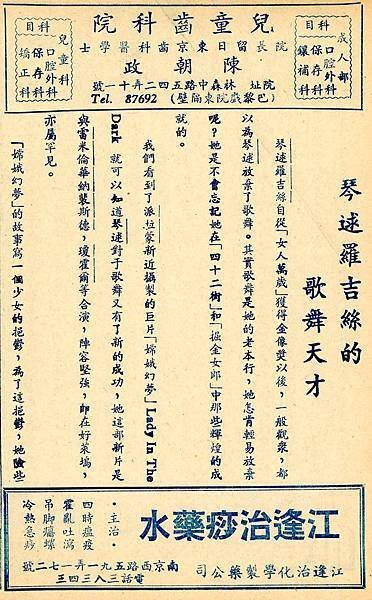 兒童齒科醫院
院長留日東京齒科醫學士
陳朝政
院址 林森中路五四二弄十一號
Tel. 87692 (巴黎戲院東隔壁)
成人部
科目
口腔外科
保存科
鑲補科
科目
兒童科
口腔外科
保存科
矯正科
琴逑羅吉絲的
歌舞天才
琴逑羅吉絲自從「女人萬歲」獲得金像獎以後,一般觀衆,都
以為琴逑放棄了歌舞。其實歌舞是她的老本行,她怎肯輕易放棄
呢?她是不會忘記她在「四十二街」和「掘金女郎」中那些輝煌的成
就的。
我們看到了派拉蒙新近攝製的巨片「嫦娥幻夢」Lady In The
Dark 就可以知道琴逑對于歌舞又有了新的成功,她這部新片是
與雷米倫華納裴斯德,瓊霍爾等合演,陣容堅強,卽在好萊塢,
亦屬罕見。
「嫦娥幻夢」的故事寫一個少女的抱鬱,為了這抱鬱,她險些
江逢治痧藥水
•主治•
四時瘟疫
霍亂吐瀉
吊脚癟螺
冷熱急痧
江逢治化學製藥公司
南京西路五九一弄一七二號
電話三八三四三